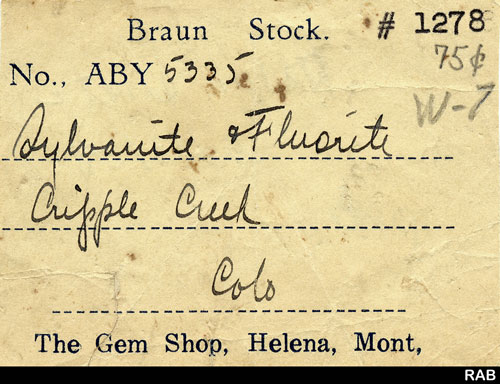 Braun Stock. # 1278
75¢
No., ABY 5335
W-7
Sylvanite & Fluorite
Cripple Creek
Colo
The Gem Shop, Helena, Mont,
RAB